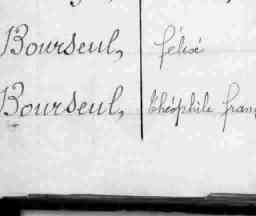 Bourseul, félix
Bourseul, théophile fran